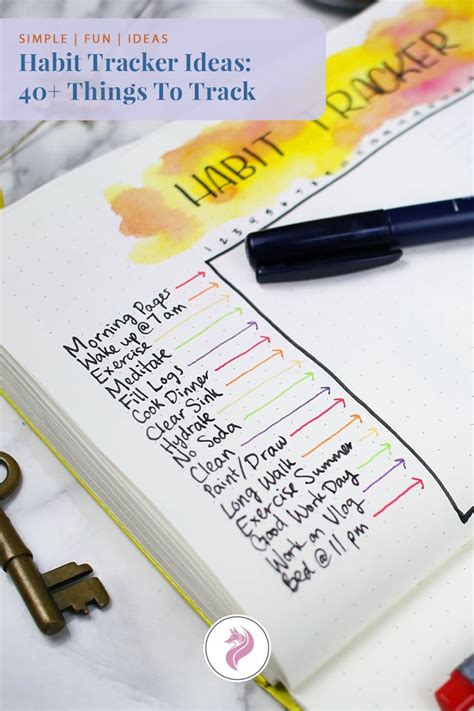 SIMPLE | FUN | IDEAS
Habit Tracker Ideas:
40+ Things To Track
HABIT TRACKER
1 2 3 4 5 6 7
Morning Pages
Wake up @ 7am
Exercise
Meditate
Fill Logs
Cook Dinner
Clear Sink
Hydrate
No Soda
Clean
Paint/Draw
Long Walk
Exercise Summer
Good Work Day
Work on Vlog
Bed @ 11 pm